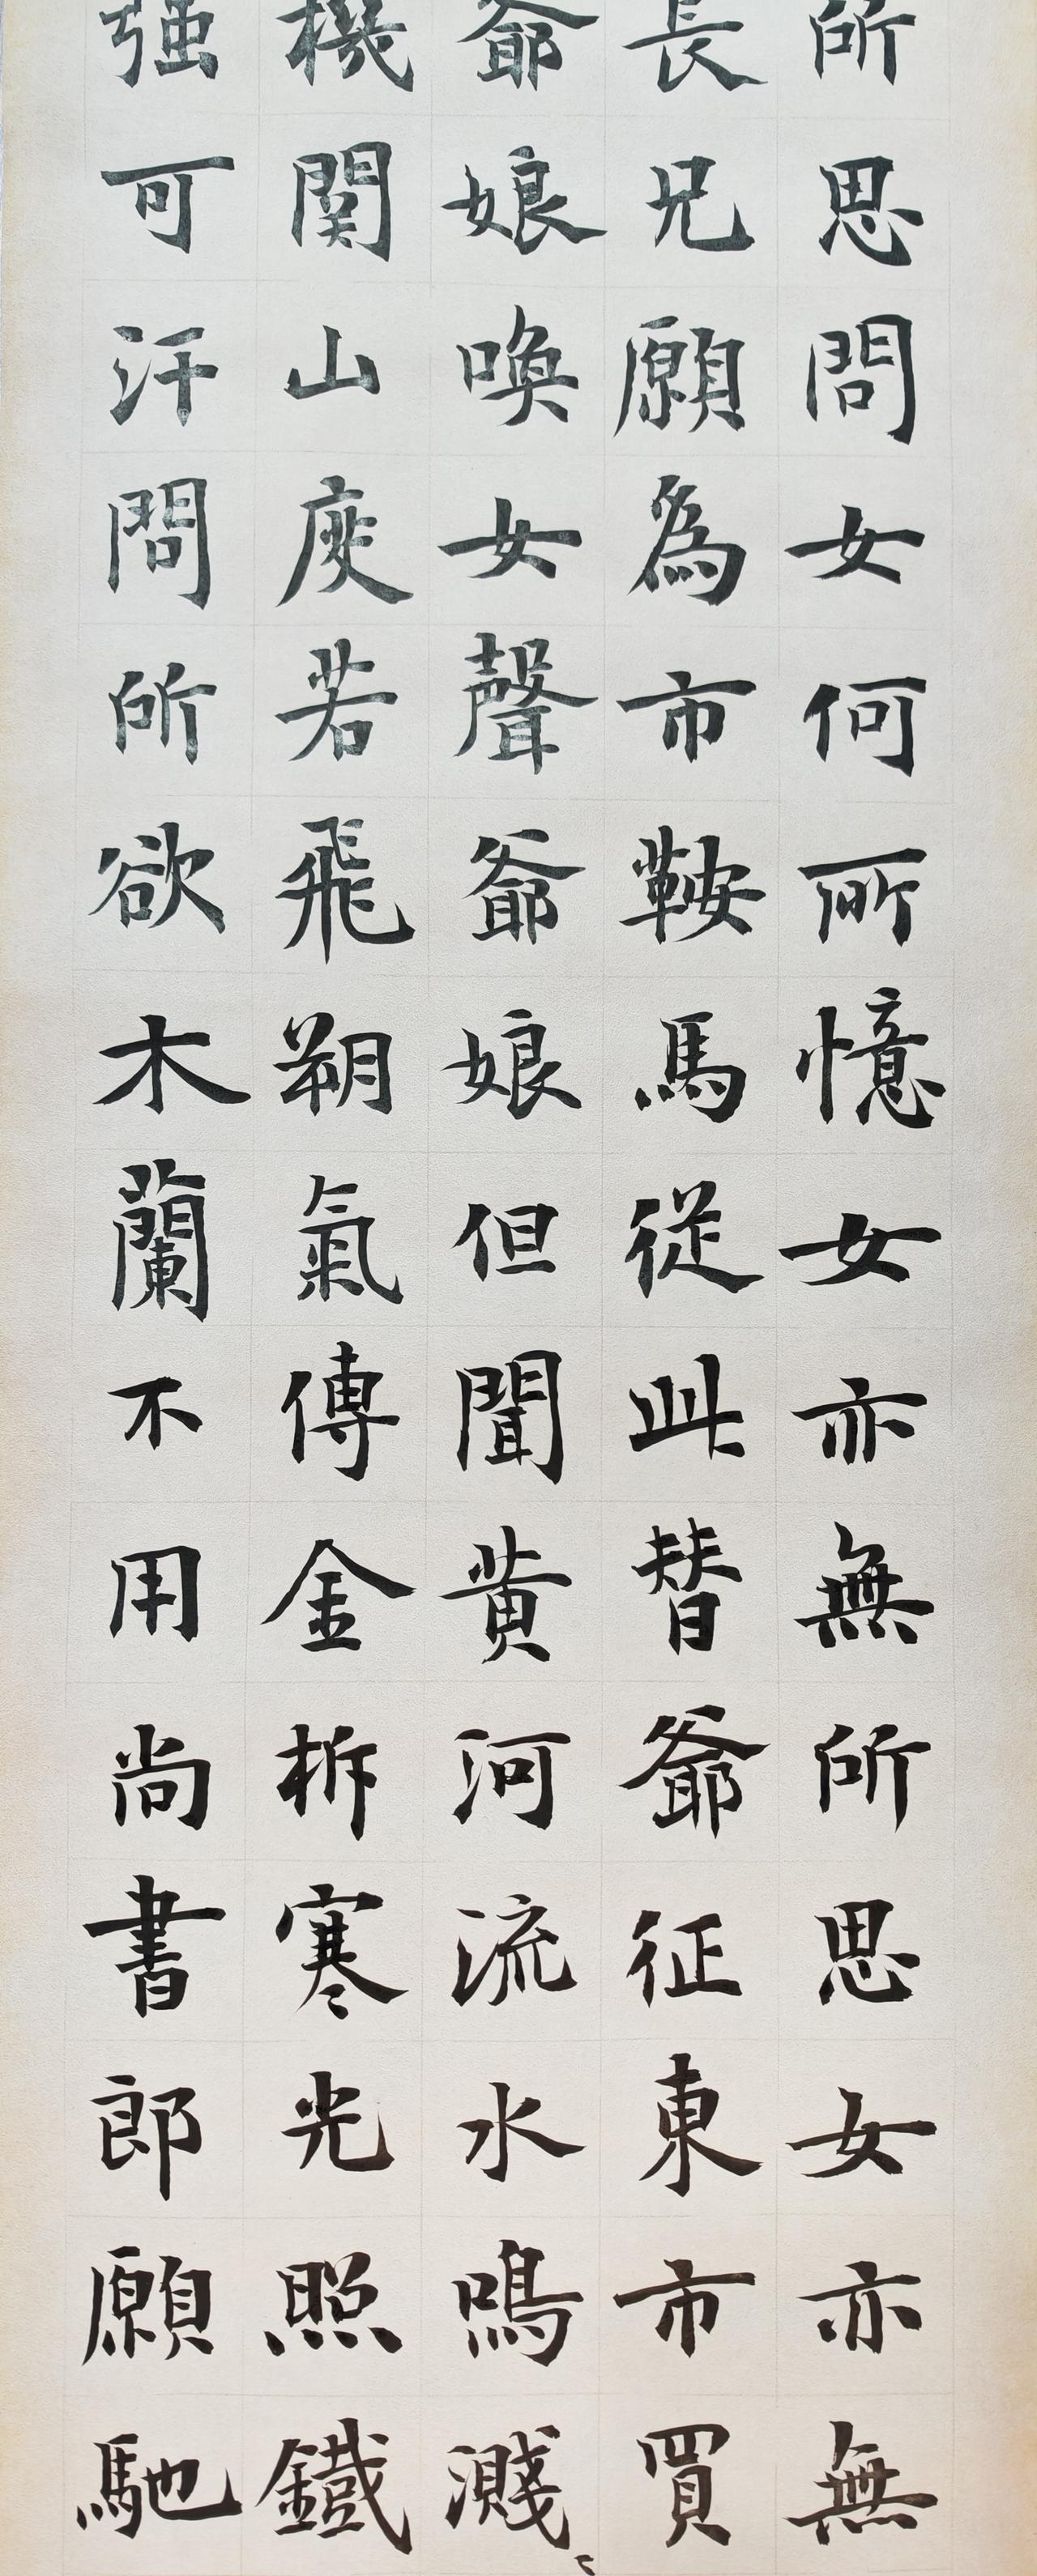 所思問女何所憶女亦無所思女亦無
長兄願為市鞍馬從此替爺征東市買
爺娘喚女聲爺娘但聞黃河流水鳴濺〻
機關山度若飛朔氣傳金柝寒光照鐵
強可汗問所欲木蘭不用尚書郎願馳